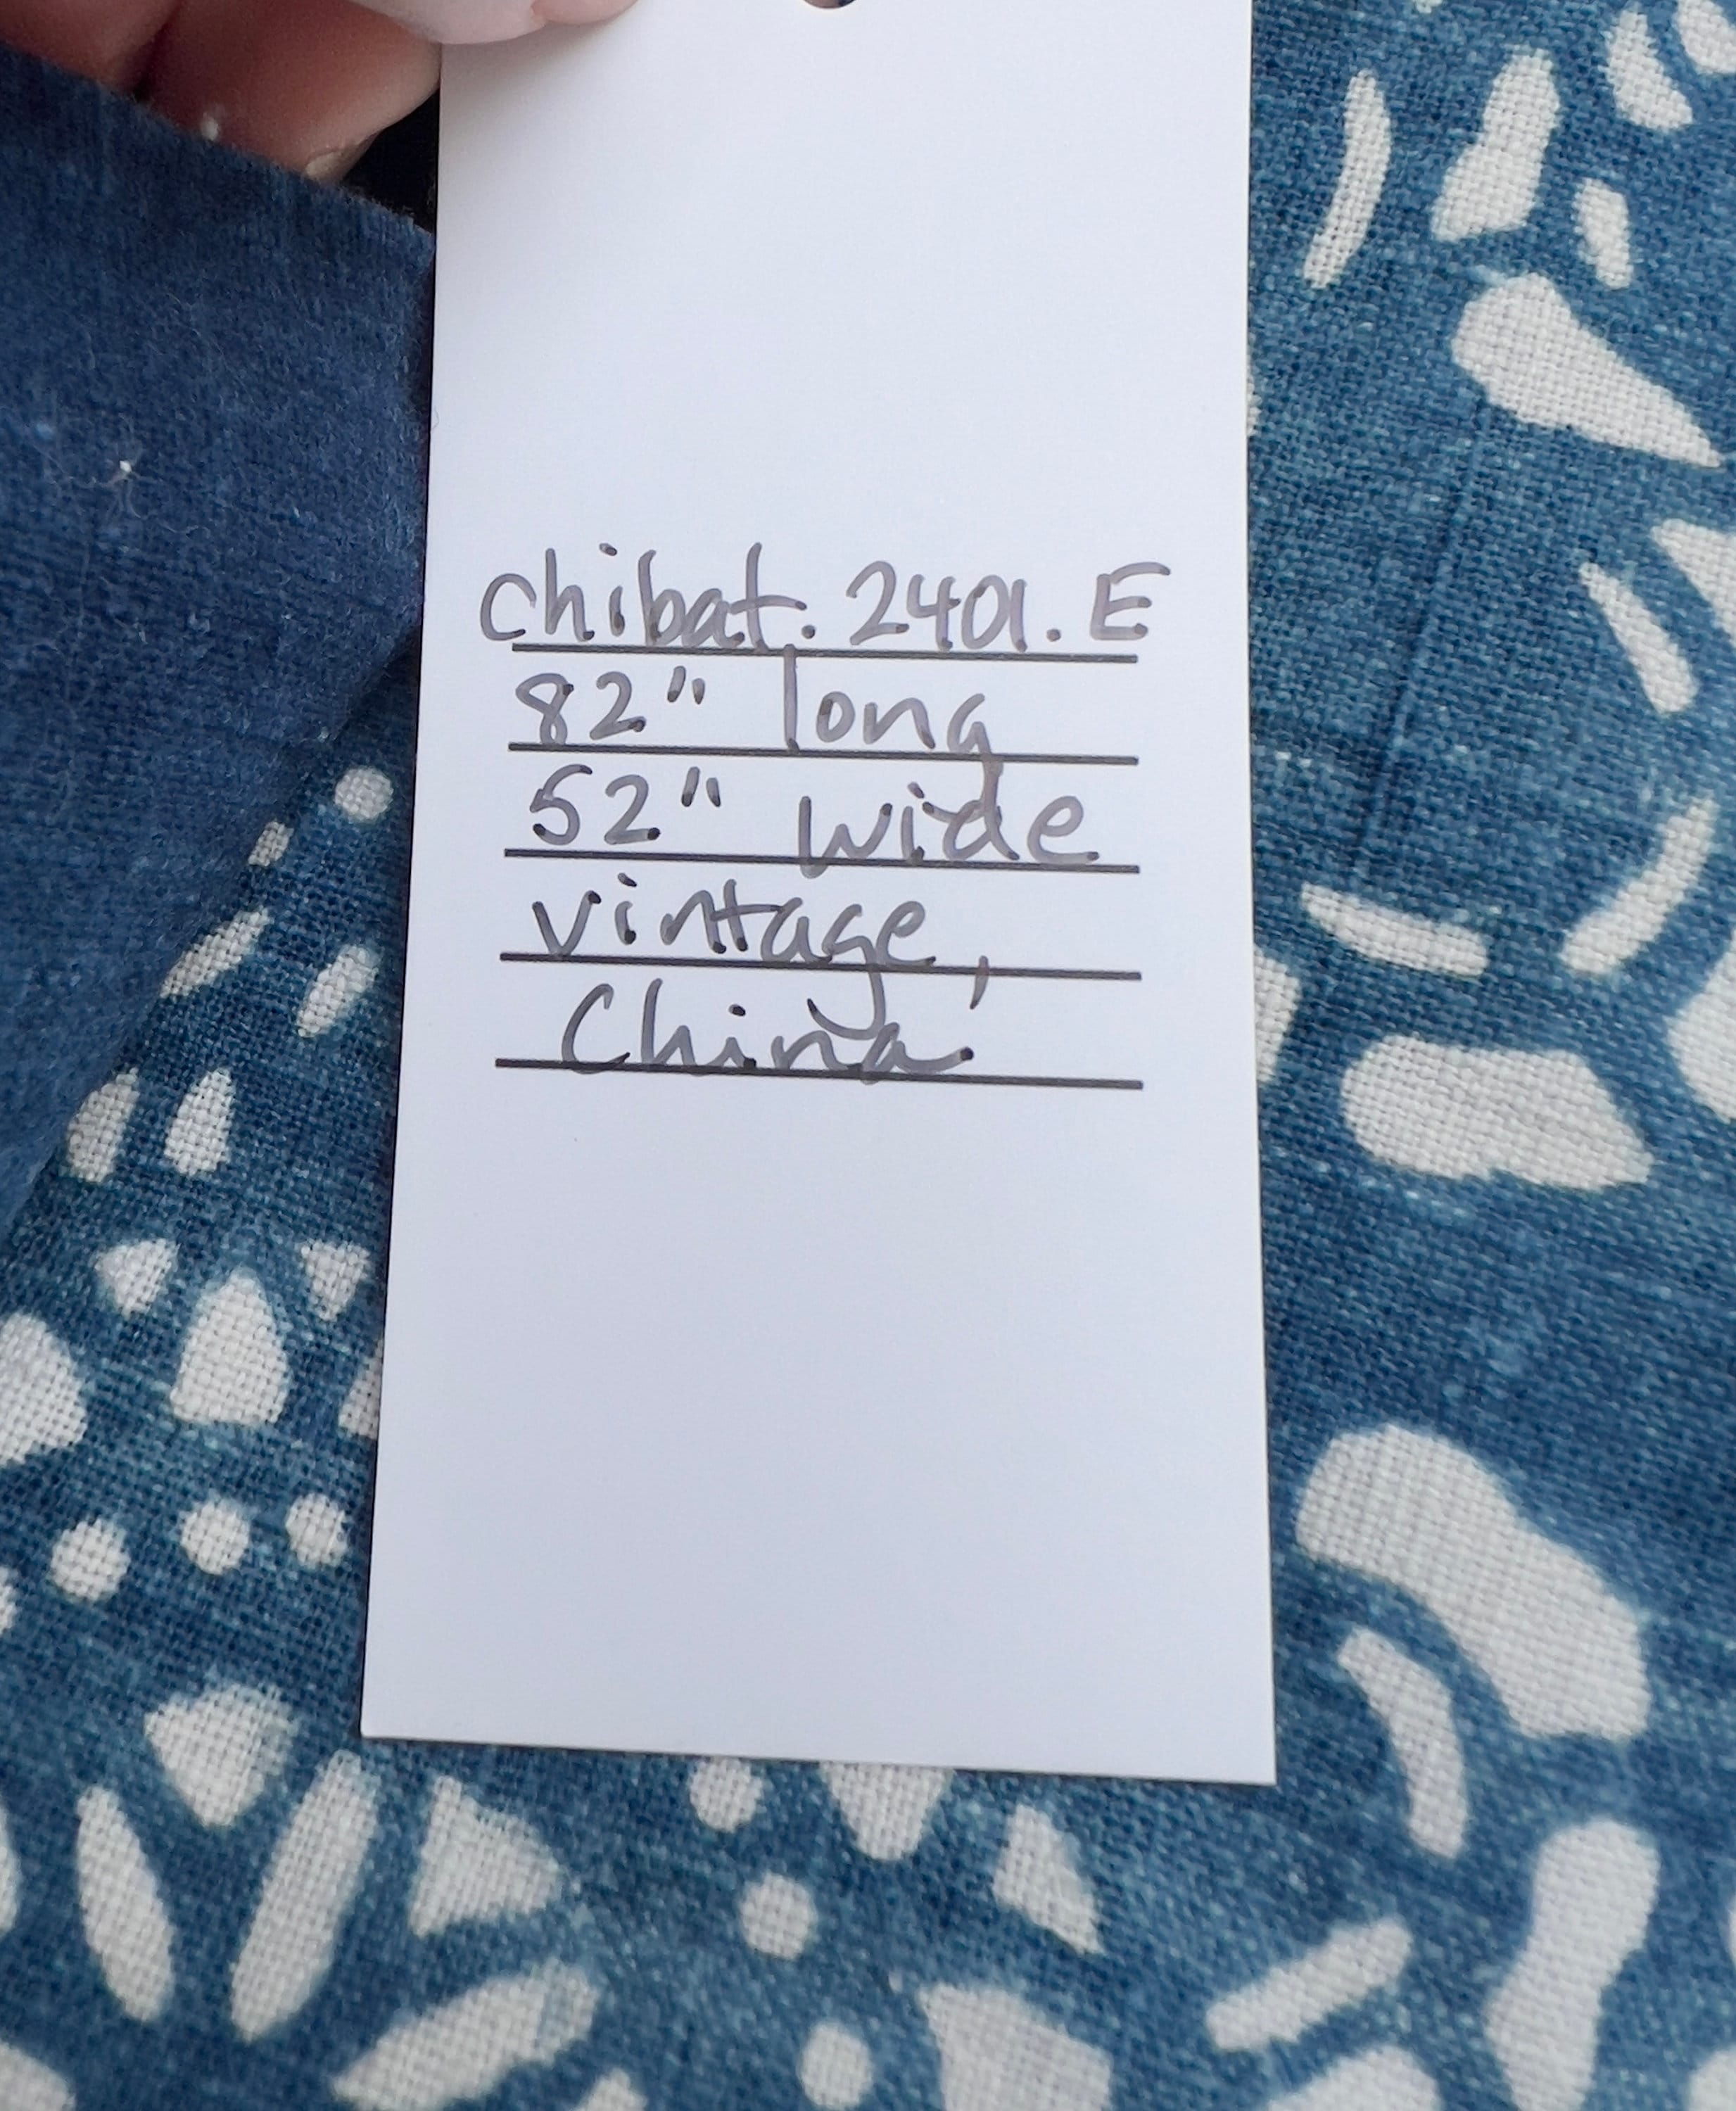 chibat. 2401. E
82" long
52" wide
vintage,
China